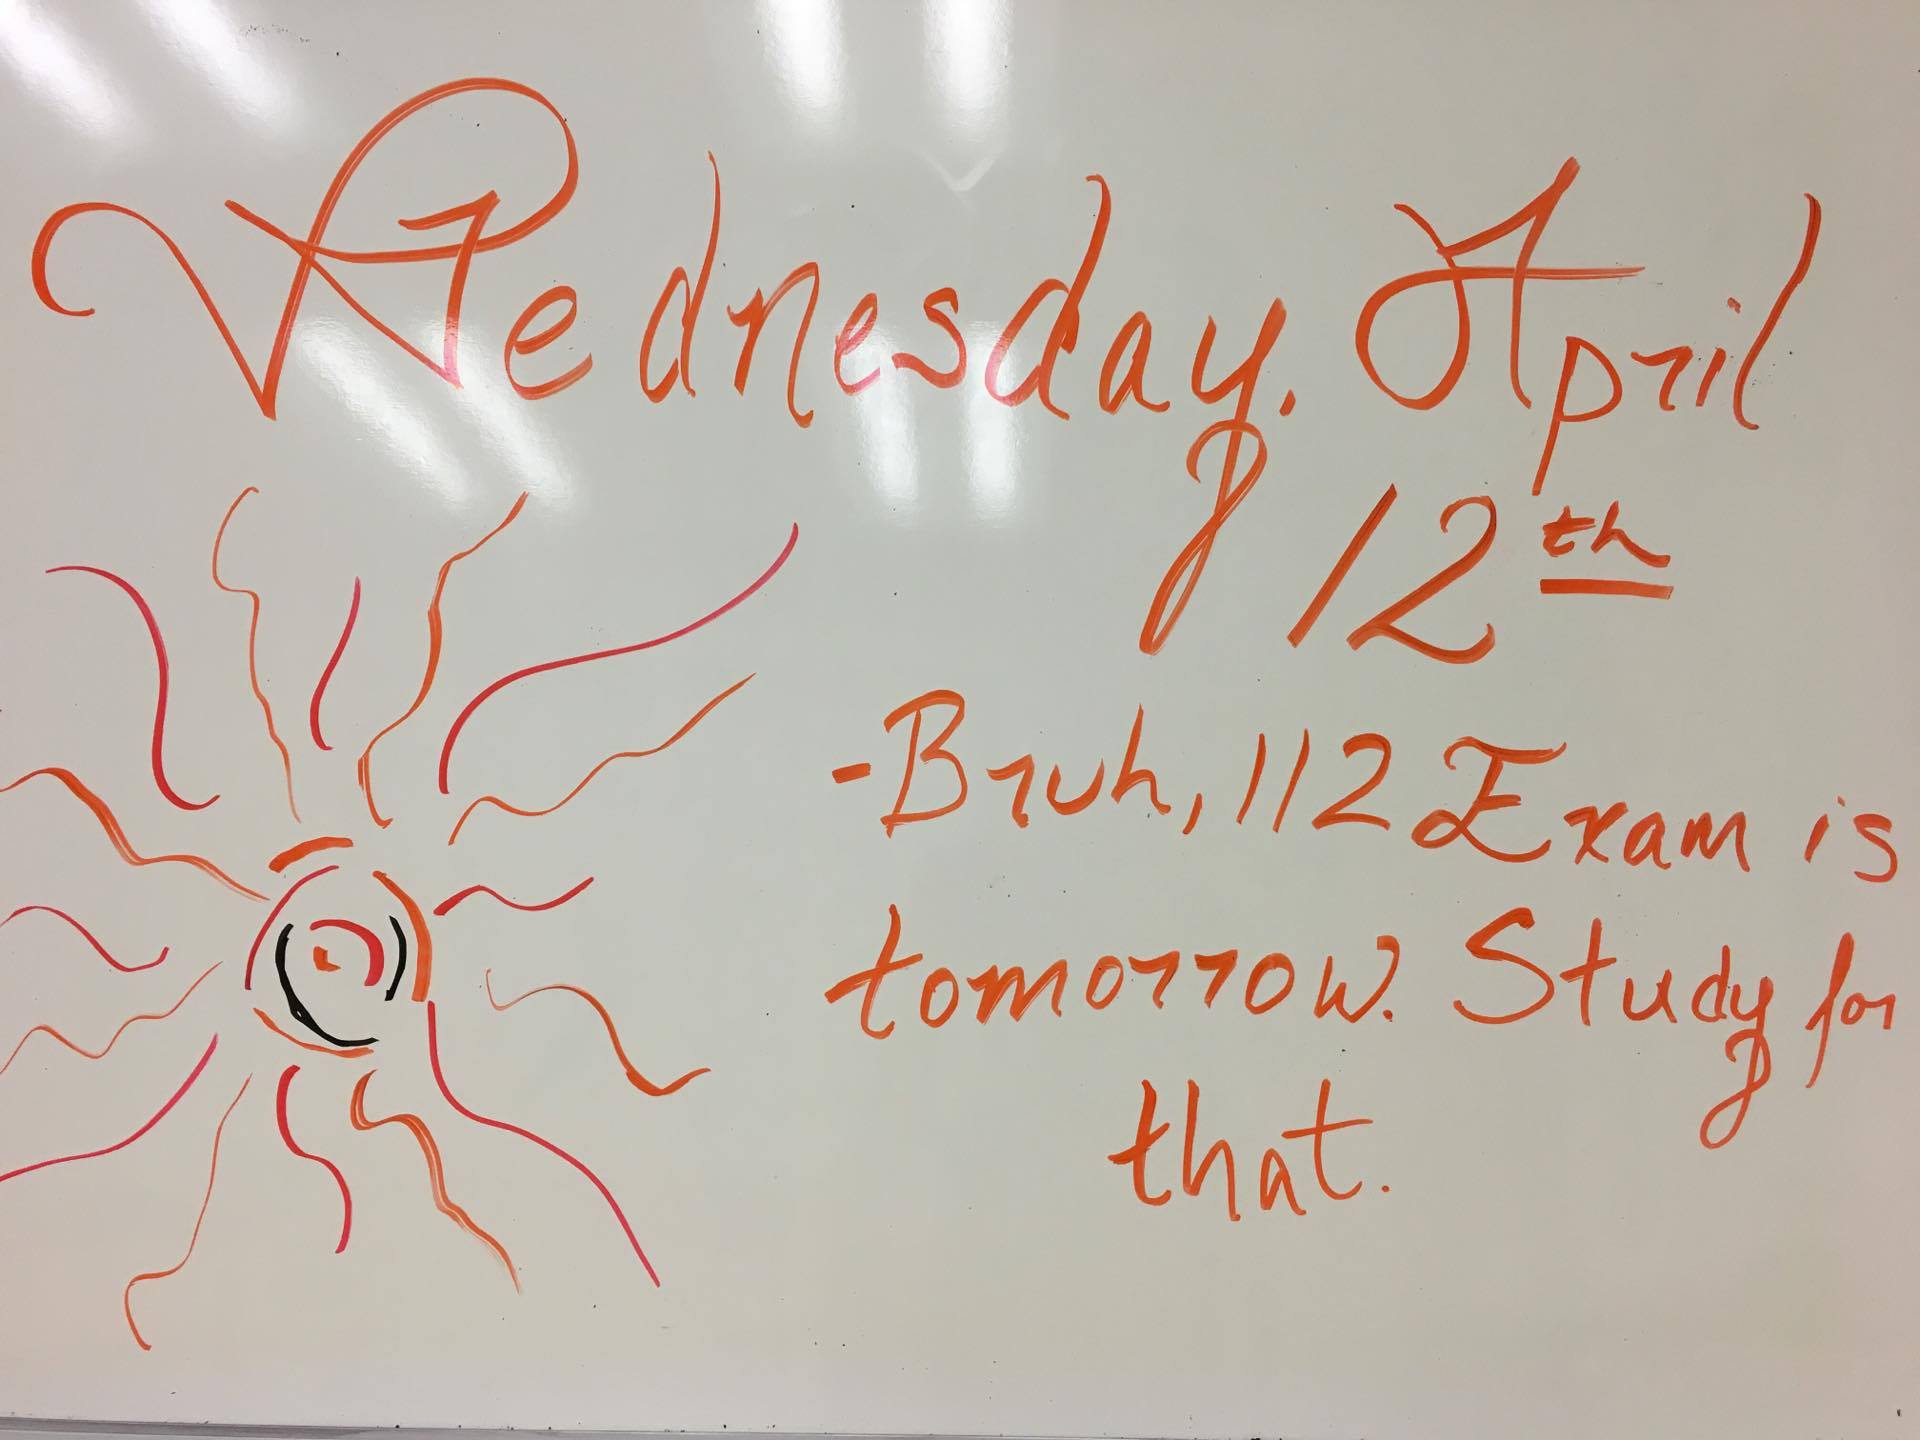 Wednesday. April
12th
-Bruh, 112 Exam is
tomorrow. Study for
that.